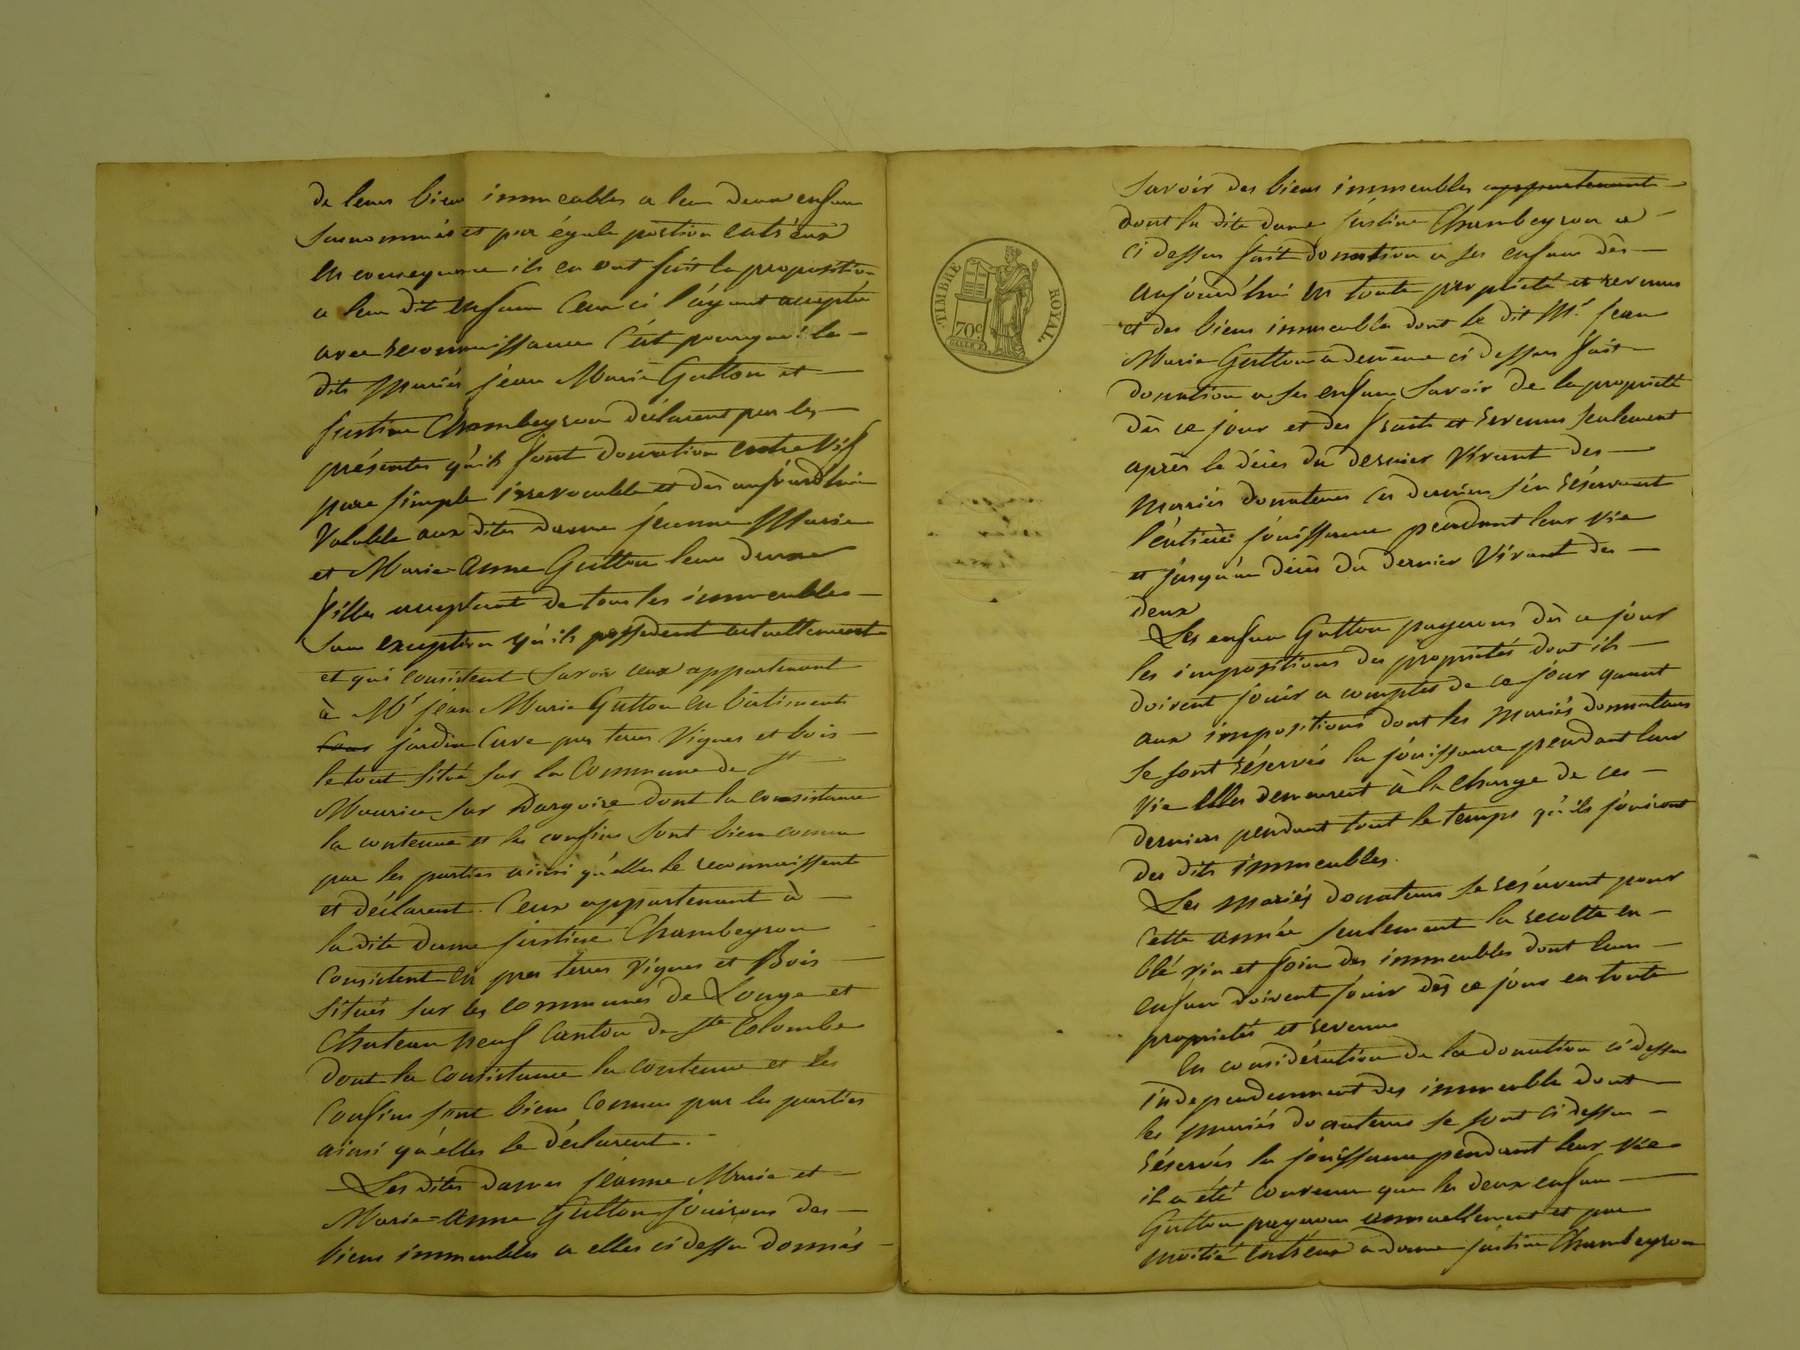 de leurs bien immeubles a leur deux enfans
surnommés et par égale portion entr'eux
en consequence ils en ont fait la proposition
a leur dit enfans Ceux ci l'áyant accepté
avec reconnaissance C'ést pourquoi les
dits Mariés jean Marie Gutton et
justine Chambeyron déclarent par les
présentes qu'ils font donation entre vifs
pure simple irrevocable et dès aujourd'hui
Valable aux dites dames jeanne Marie
et Marie-Anne Gutton leurs deux
filles acceptant de tous les immeubles
sans exception qu'ils possedent actuellement
et qui consistent savoir ceux appartenant
à Mr jean Marie Gutton en bâtiments
Cour jardin Cuve pres terres Vignes et bois
le tout situé sur la Commune de St
Maurice sur Dargoire dont la consistance
la contenue et les confins sont bien connu
par les parties ainsi qu'elles le reconnaissent
et déclarent. Ceux appartenant à
la dite dame justine Chambeyron
Consistent en pres terres Vignes et Bois
situés sur les communes de Longe et
Chateau neuf Canton de Ste Colombe
dont la Consistance la contenue et les
Confins sont bien Connus par les parties
ainsi qu'elles le déclarent.
Les dites dames jéanne Marie et
Marie-Anne Gutton jóuirons des
biens immeubles a elles ci dessus donnés
TIMBRE ROYAL.
70c
Savoir des biens immeubles appartenant
dont la dite dame justine Chambeyron a
ci dessus fait donation a ses enfans dès
aujourd'hui en toute propriété et revenus
et des biens immeubles dont le dit Mr. jean
Marie Gutton a demême ci dessus fait
donation a ses enfans Savoir de la propriété
dès ce jour et des fruits et revenus seulement
après le décès du dernier Vivant des
Mariés donateurs Ces derniers s'én réservant
l'éntière jóuissance pendant leur Vie
et jusqu'au décès du dernier Vivant des
deux
Les enfans Gutton payerons dès ce jour
les impositions des propriétés dont ils
doivent jouir a comptés de ce jour quant
aux impositions dont les Mariés donnateurs
se sont réservés la jóuissance pendant leur
Vie Elles demeurent à la Charge de ces
derniers pendant tout le temps qu'ils jóuiront
des dits immeubles.
Les Mariés donateurs se resérvent pour
Cette année seulement la recolte en
blé vin et foin des immeubles dont leurs
enfans doivent jóuir dès ce jóur en toute
propriétés et revenus
En considération de la donation ci dessus
independamment des immeuble dont
les Mariés donateurs se sont ci dessus
réservés la jóuissance pendant leur Vie
il a été Convenu que les deux enfans
Gutton payerons annuellement et par
moitié entr'eux a dame justine Chambeyron